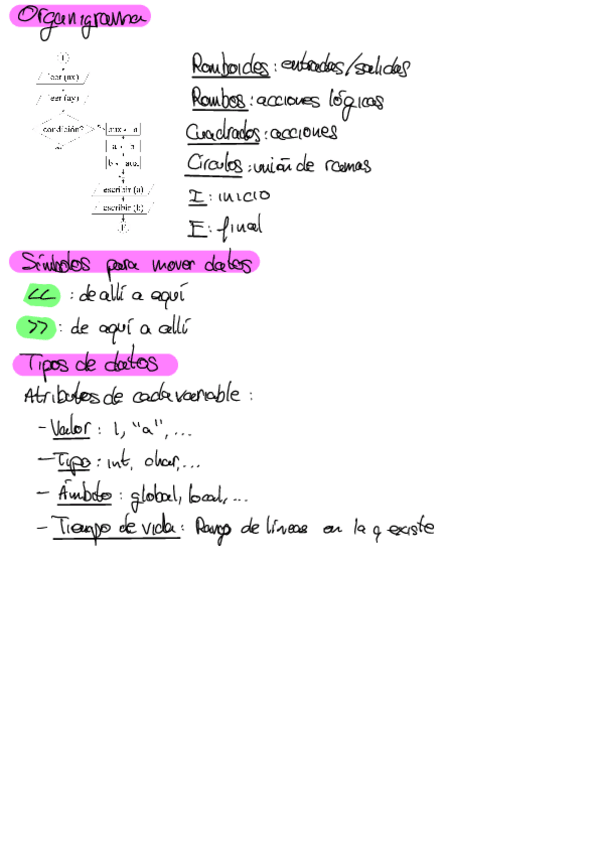 Organigrama
I
leer (ax)
leer (ay)
condición?
escribir (a)
escribir (b)
F
Romboides: entradas/salidas
Rombos: acciones lógicas
Cuadrados: acciones
Círculos: unión de ramas
I: inicio
F: final
Símbolos para mover datos
<< : de allí a aquí
>> : de aquí a allí
Tipos de datos
Atributos de cada variable:
- Valor: 1, "a", ...
- Tipo: int, char, ...
- Ámbito: global, local, ...
- Tiempo de vida: Rango de líneas en la q existe